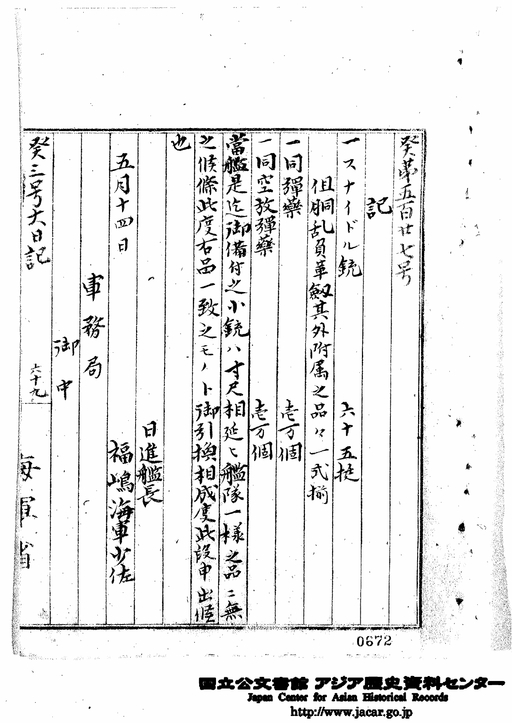 癸第五百廿七号
記
一スナイドル銃 六十五挺
但胴乱負革劔其外附属之品々一式揃
一同彈藥 壱万個
一同空放彈藥 壱万個
當艦是迄御備付之小銃ハ寸尺相延ヒ艦隊一様之品ニ無
之候條此度右品一致之モノト御引換相成度此段申出候
也
五月十四日
日進艦長
福嶋海軍少佐
軍務局
御中
癸三号大日記
六十九
海軍省
0672
国立公文書館 アジア歴史資料センター
Japan Center for Asian Historical Records
http://www.jacar.go.jp